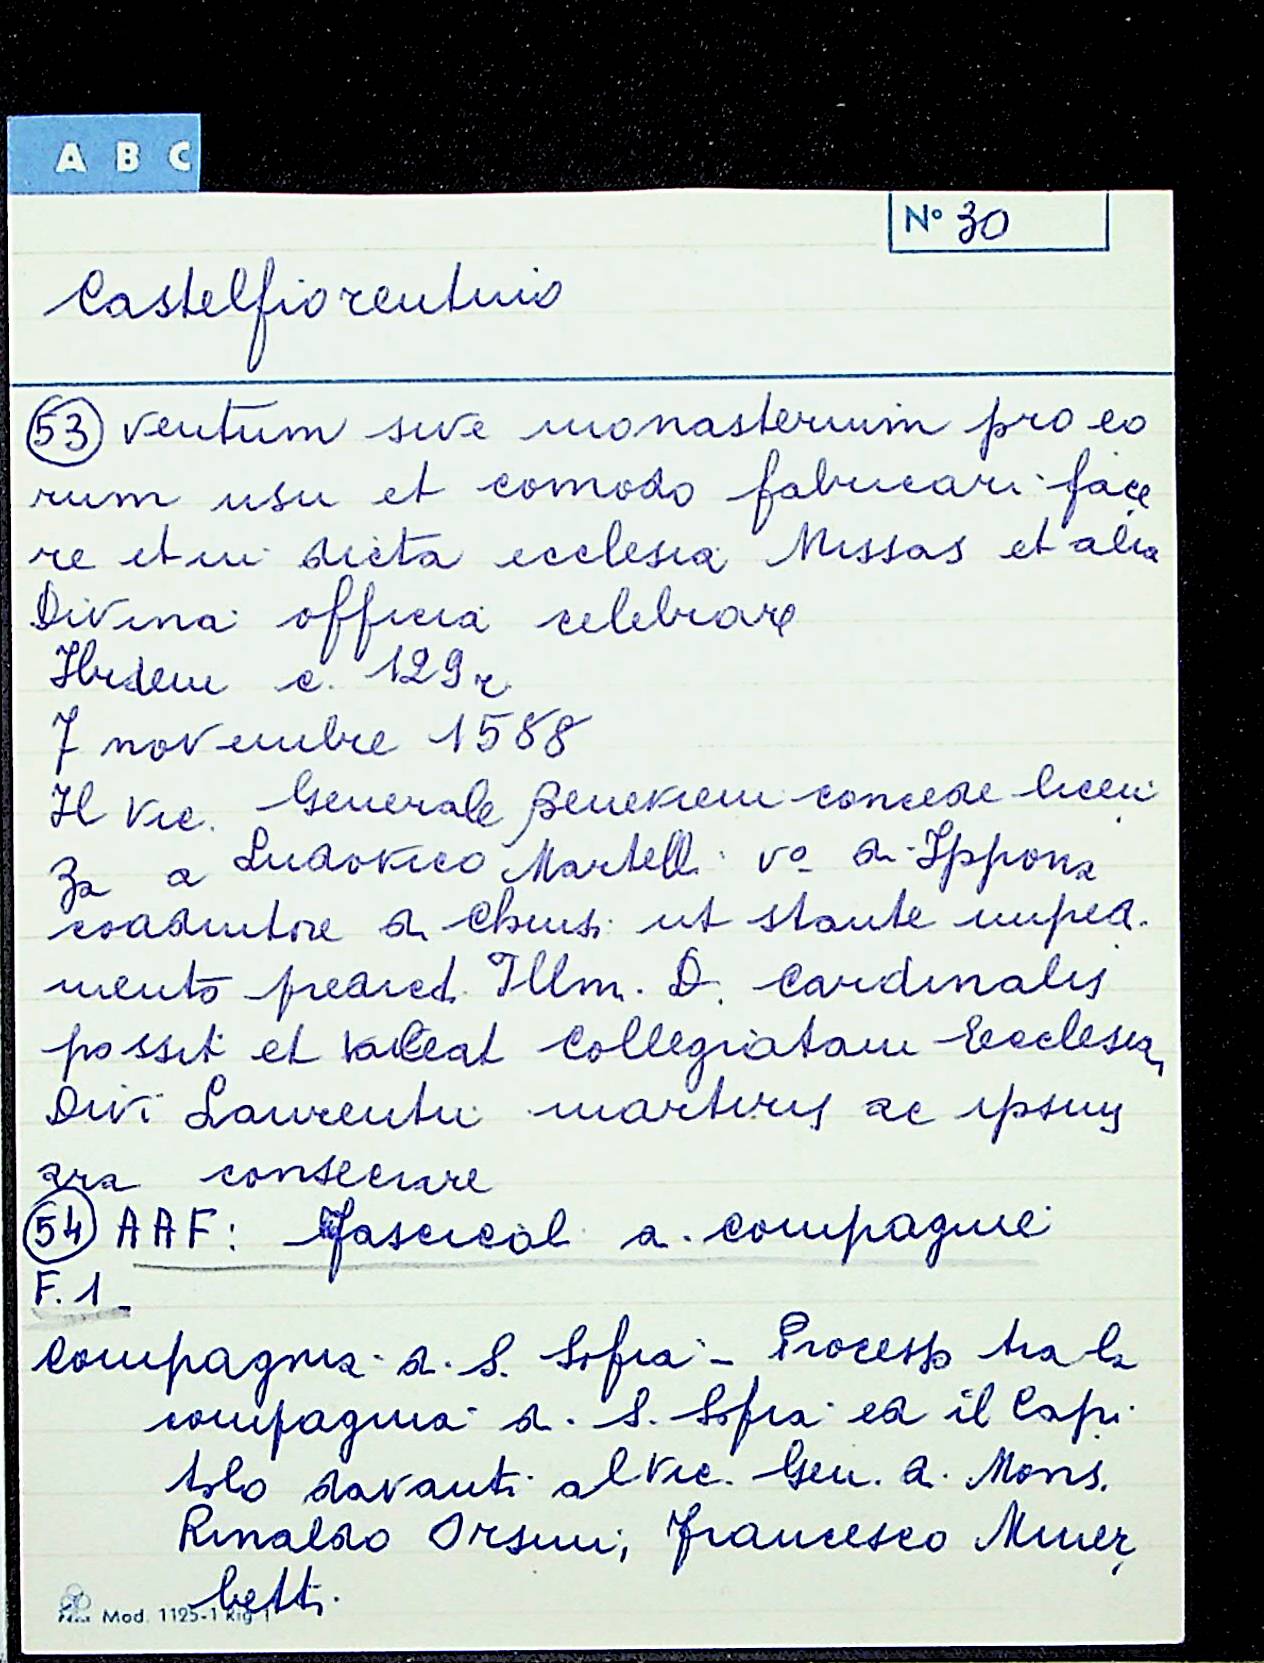 A B C
N° 30
Castelfiorentino
53 ventum sive monasterium pro eo
rum usu et comodo fabricari face
re et in dicta ecclesia Missas et alia
Divina officia celebrare
Ibidem c. 129 r
7 novembre 1588
Il Vic. Generale concede licen
za a Ludovico Martelli v° di Ippona
coadiutore di Chiusi ut stante imped.
mento predict. Illm. D. Cardinalis
possit et valeat Collegiatam Ecclesia
Divi Laurentii martiris ac ipsius
ara consecrare
54 AAF: Fascicoli di compagnie
F. 1 -
Compagnia di S. Sofia - Processo tra la
compagnia di S. Sofia ed il Capi
tolo davanti al Vic. Gen. di Mons.
Rinaldo Orsini, Francesco Miner
betti.
Mod. 1125-1 Rig 1